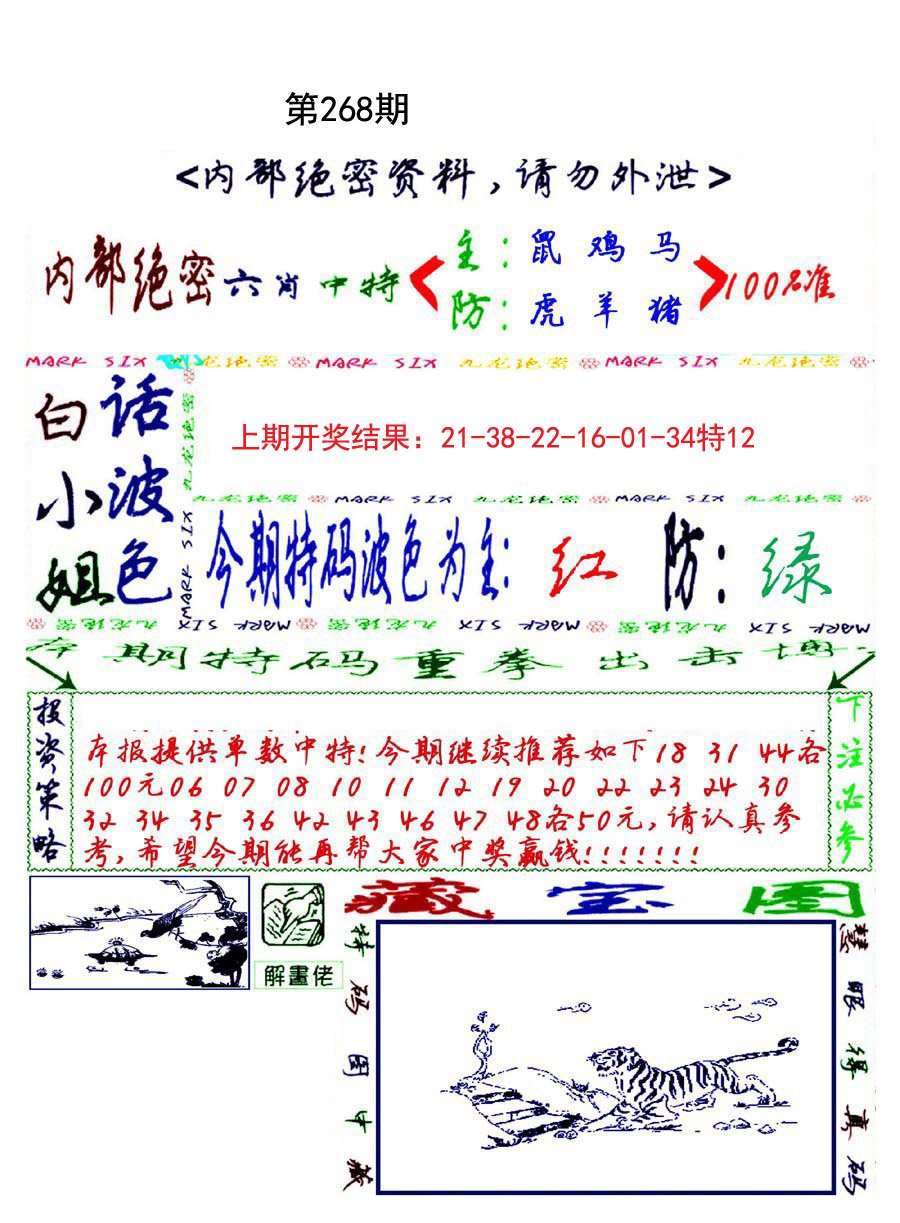 第268期
<内部绝密资料,请勿外泄>
内部绝密六肖中特
主:鼠鸡马
防:虎羊猪
100%准
MARK SIX 九龙绝密 MARK SIX 九龙绝密 MARK SIX 九龙绝密
白话
小波
姐色
九龙绝密 MARK SIX
上期开奖结果：21-38-22-16-01-34特12
九龙绝密 MARK SIX 九龙绝密 MARK SIX 九龙绝密
今期特码波色为主:红 防:绿
九龙绝密 MARK SIX 九龙绝密 MARK SIX 九龙绝密 MARK SIX
本期特码重拳出击博
投资策略
本报提供单数中特!今期继续推荐如下18 31 44各
100元06 07 08 10 11 12 19 20 22 23 24 30
32 34 35 36 42 43 46 47 48各50元,请认真参
考,希望今期能再帮大家中奖赢钱!!!!!!!
下注必参
解畫佬
藏宝图
特码图中藏
慧眼得真码